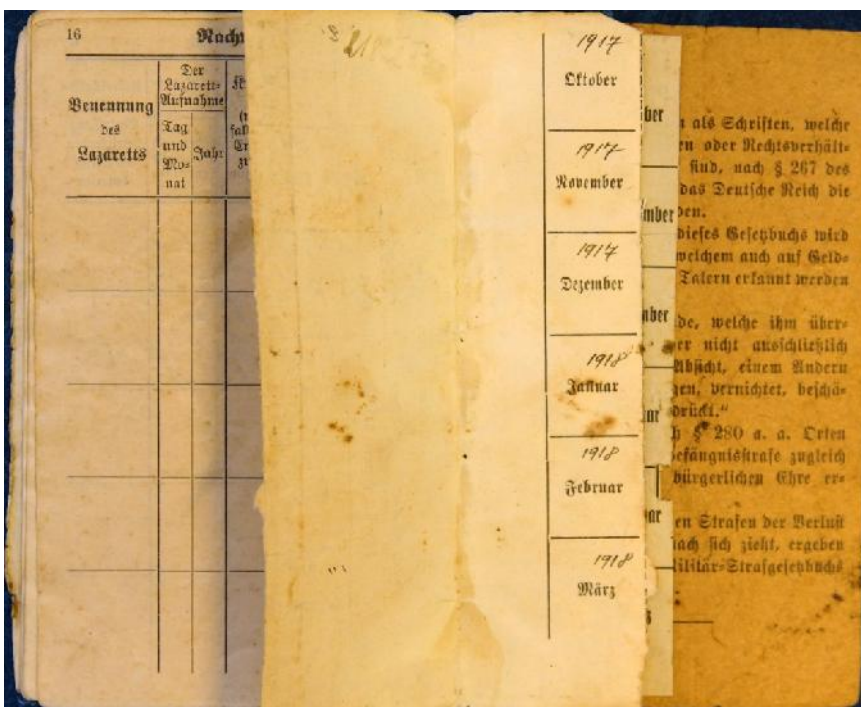 16
Der
Lazarett-
Aufnahme
Benennung
des
Lazaretts
Tag
und
Mo-
nat
Jahr
1917
Oktober
1917
November
1917
Dezember
1918
Januar
1918
Februar
1918
März
ber
mber
mber
ar
uar
als Schriften, welche
en oder Rechtsverhält-
sind, nach § 267 des
das Deutsche Reich die
den.
dieses Gesetzbuchs wird
welchem auch auf Geld-
Talern erkannt werden
de, welche ihm über-
er nicht ausschließlich
Absicht, einem Andern
zen, vernichtet, beschä-
drückt.“
§ 280 a. a. Orten
efängnisstrafe zugleich
bürgerlichen Ehre er-
en Strafen der Verlust
nach sich zieht, ergeben
Militär-Strafgesetzbuchs